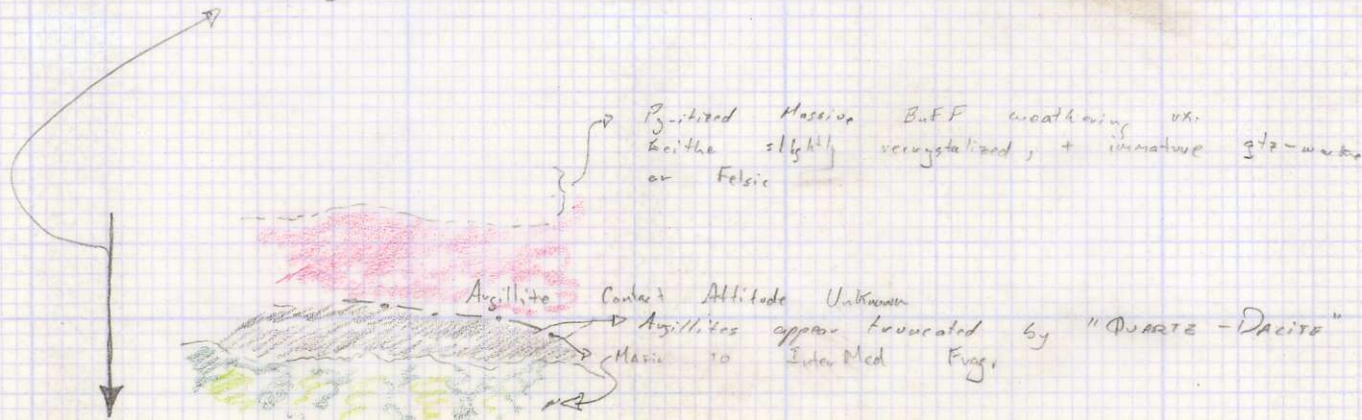 Pyritized Massive Buff weathering vx.
Neithe slightly recrystalized, + immature qtz-wacke
or Felsic
Argillite Contact Attitude Unknown
Argillites appear truncated by "QUARTZ-DACITE"
Mafic to InterMed Frag.